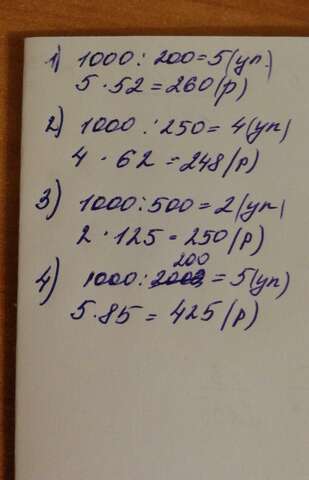 1) 1000 : 200 = 5 (уп.)
5 · 52 = 260 (р)
2) 1000 : 250 = 4 (уп)
4 · 62 = 248 (р)
3) 1000 : 500 = 2 (уп)
2 · 125 = 250 (р)
200
4) 1000 : = 5 (уп)
5 · 85 = 425 (р)